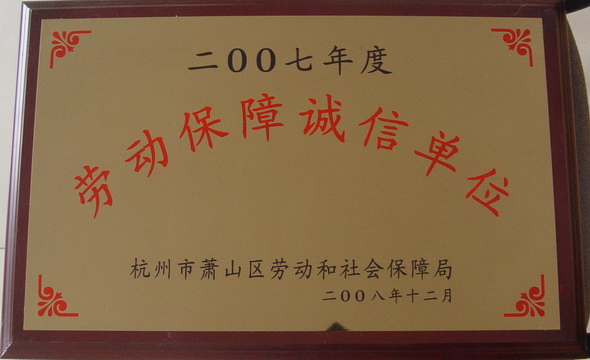 二OO七年度
劳动保障诚信单位
杭州市萧山区劳动和社会保障局
二OO八年十二月